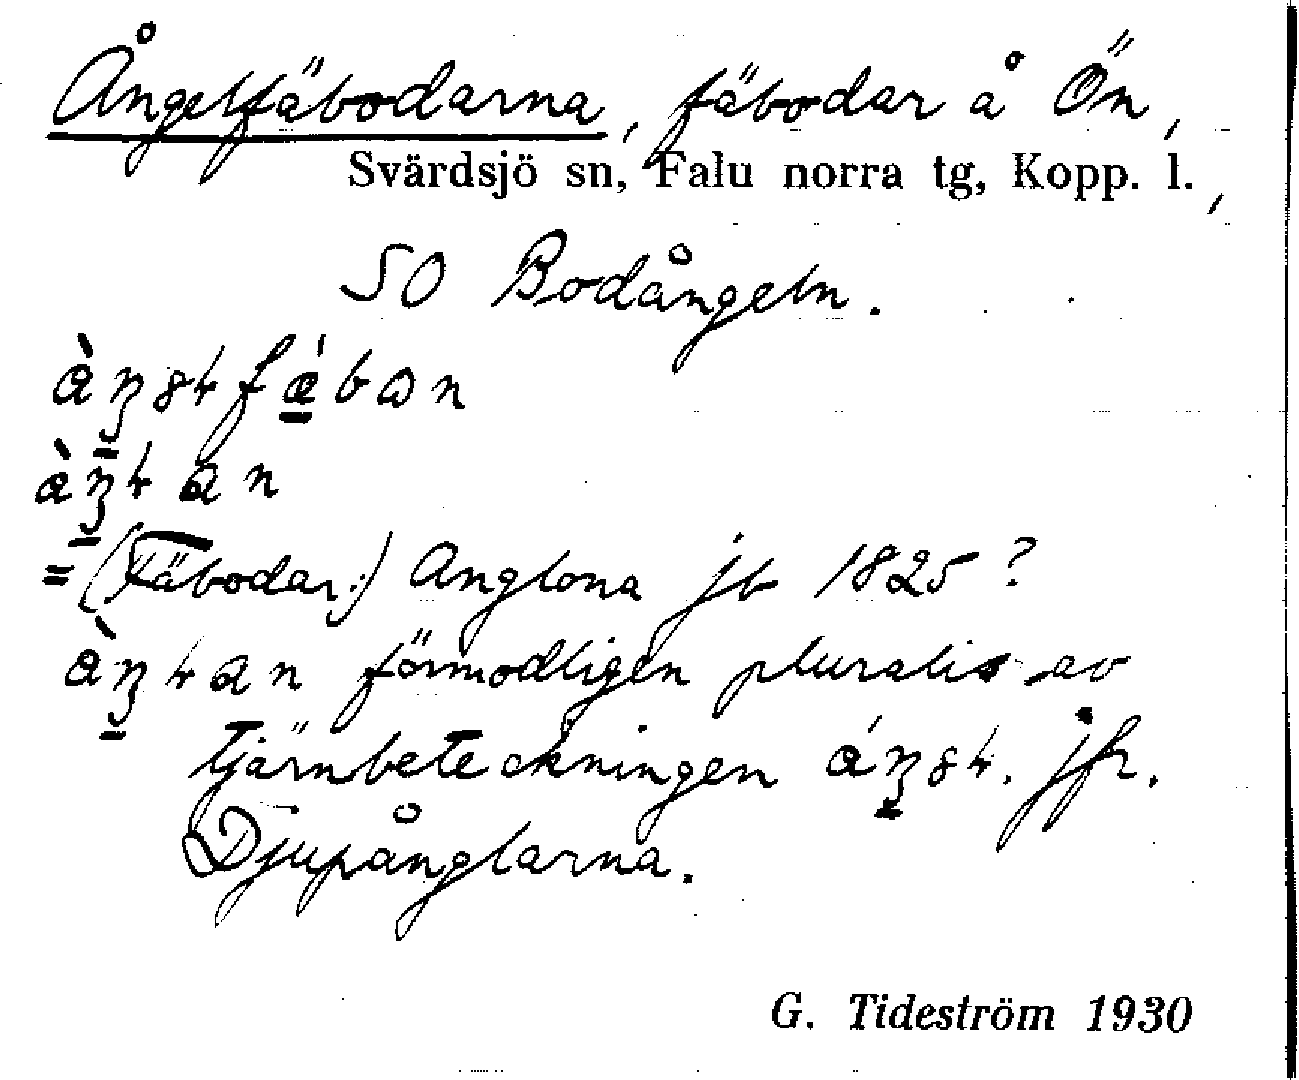 Ångelfäbodarna, fäbodar å Ön,
Svärdsjö sn, Falu norra tg, Kopp. l.,
SO Bodångeln.
= (Fäbodar:) Anglona jb 1825?
förmodligen pluralis av
tjärnbeteckningen jfr.
Djupånglarna.
G. Tideström 1930